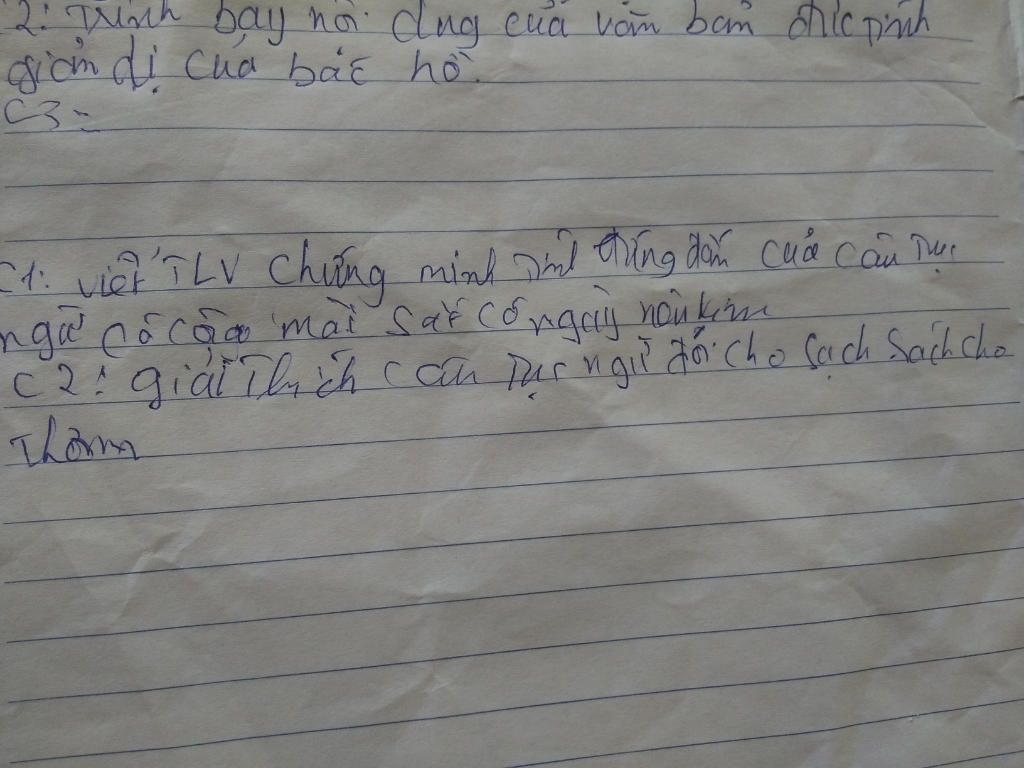 2: Trình bay nôi dng của văn bản đức tính
giản dị của bác hồ.
C3:
C1: viết TLV chứng minh tính đúng đắn của câu tục
ngữ có công mài sắt có ngày nên kim
C2: giải thích câu tục ngữ đói cho sạch sách cho
thơm